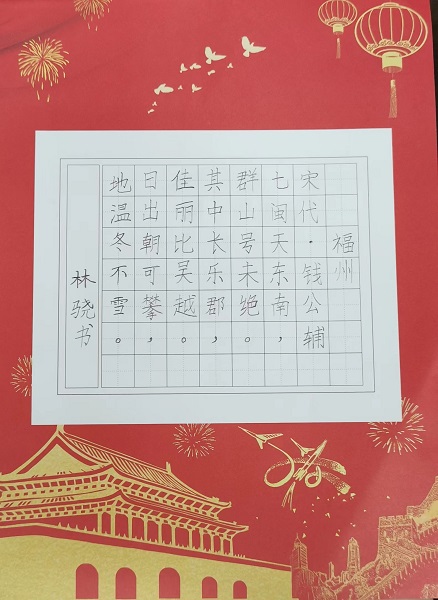 福州
宋代·钱公辅
七闽天东南，
群山号未绝。
其中长乐郡，
佳丽比吴越。
日出朝可攀，
地温冬不雪。
林骁书